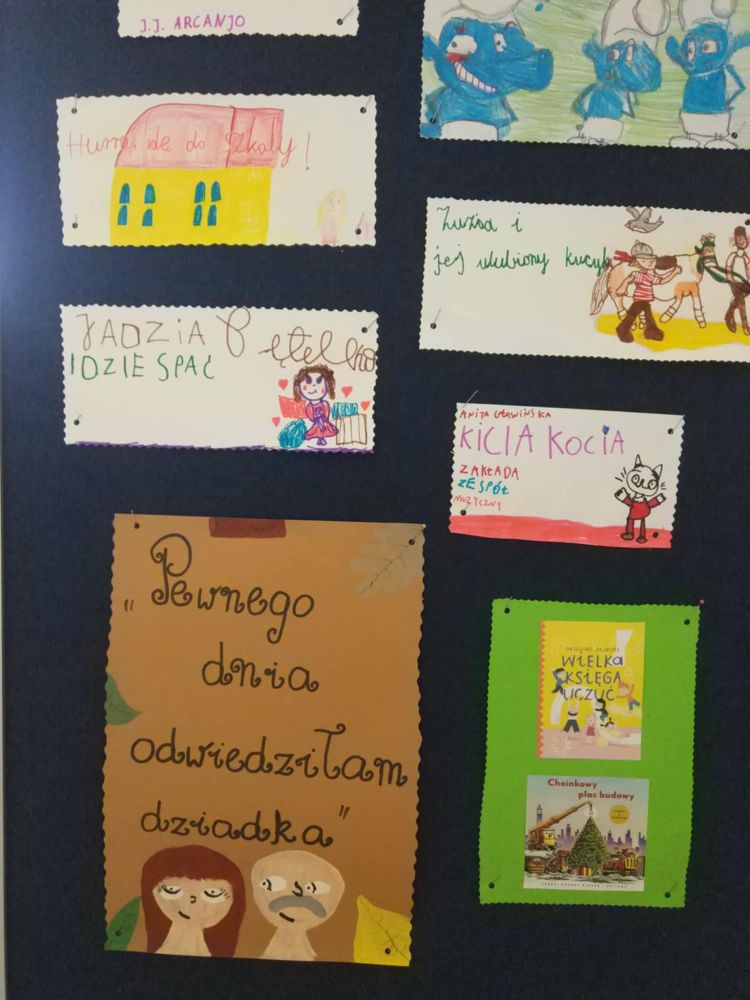 J.J. ARCANJO
Hurra, idę do szkoły!
Zuzia i
jej ulubiony kucyk
JADZIA Pętelka
IDZIE SPAĆ
ANITA GŁOWIŃSKA
KICIA KOCIA
ZAKŁADA
ZESPÓŁ
MUZYCZNY
"Pewnego
dnia
odwiedziłam
dziadka"
WIELKA
KSIĘGA
UCZUĆ
Choinkowy
plac budowy